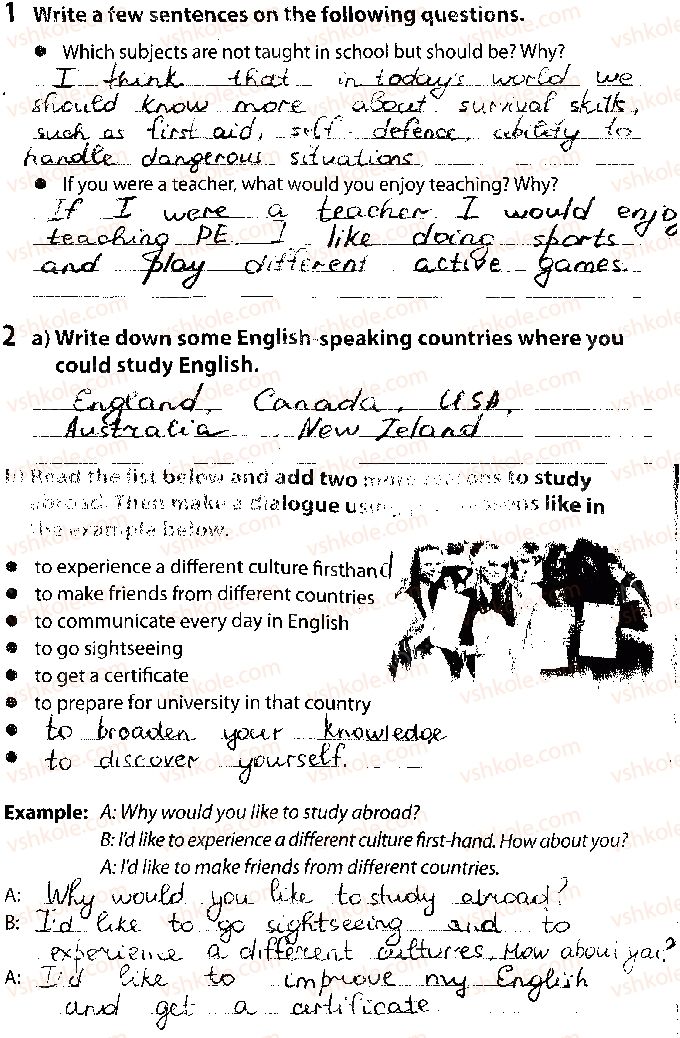 1 Write a few sentences on the following questions.
• Which subjects are not taught in school but should be? Why?
I think that in today's world we
should know more about survival skills,
such as first aid, self-defence, ability to
handle dangerous situations.
• If you were a teacher, what would you enjoy teaching? Why?
If I were a teacher I would enjoy
teaching PE. I like doing sports
and play different active games.
2 a) Write down some English-speaking countries where you
could study English.
England, Canada, USA,
Australia New Zeland
b) Read the list below and add two more reasons to study
abroad. Then make a dialogue using reasons like in
the example below.
• to experience a different culture firsthand
• to make friends from different countries
• to communicate every day in English
• to go sightseeing
• to get a certificate
• to prepare for university in that country
• to broaden your knowledge
• to discover yourself.
Example: A: Why would you like to study abroad?
B: I'd like to experience a different culture first-hand. How about you?
A: I'd like to make friends from different countries.
A: Why would you like to study abroad?
B: I'd like to go sightseeing and to
experience a different cultures. How about you?
A: I'd like to improve my English
and get a certificate
vshkole.com